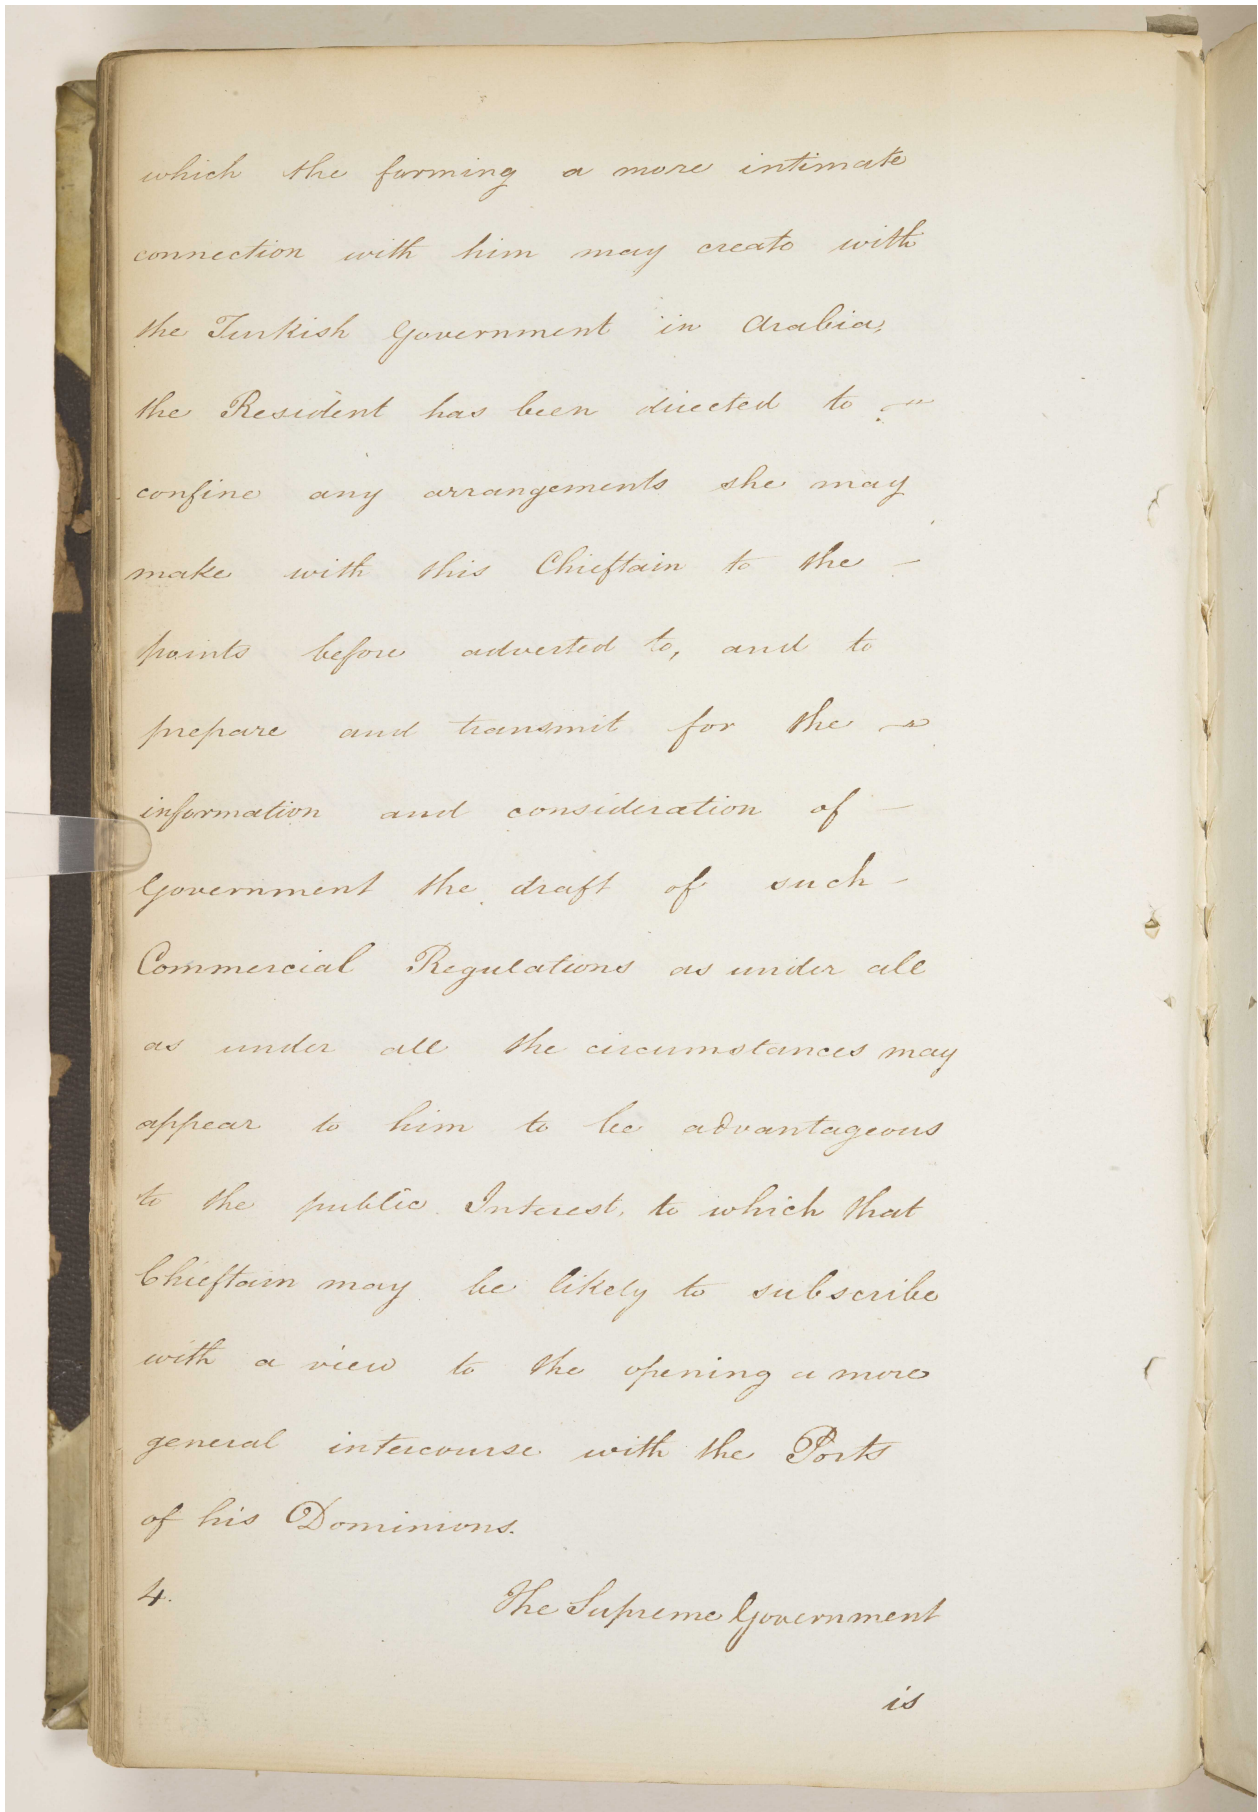 which the forming a more intimate
connection with him may create with
the Turkish Government in Arabia,
the Resident has been directed to
confine any arrangements she may
make with this Chieftain to the —
points before adverted to, and to
prepare and transmit for the
information and consideration of —
Government the draft of such —
Commercial Regulations as under all
as under all the circumstances may
appear to him to be advantageous
to the public Interest, to which that
Chieftain may be likely to subscribe
with a view to the opening a more
general intercourse with the Ports
of his Dominions.
4. The Supreme Government
is